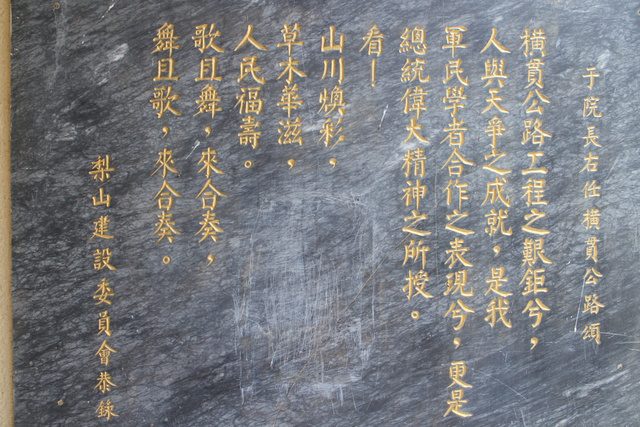 于院長右任橫貫公路頌
橫貫公路工程之艱鉅兮，
人與天爭之成就，是我
軍民學者合作之表現兮，更是
總統偉大精神之所授。
看！
山川煥彩，
草木華滋，
人民福壽。
歌且舞，來合奏，
舞且歌，來合奏。
梨山建設委員會恭錄